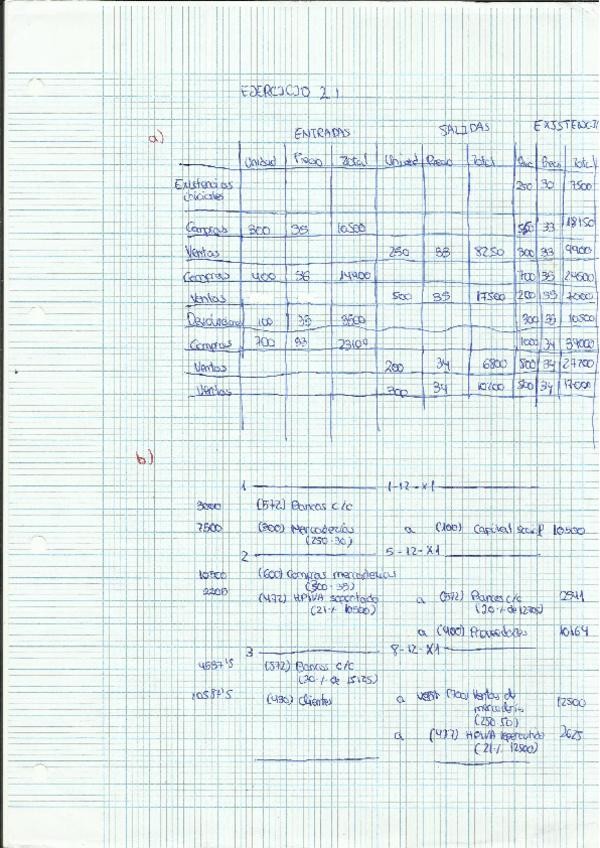 EJERCICIO 21
a)
ENTRADAS SALIDAS EXISTENCI
Unidad Precio Total Unidad Precio Total Precio Total
Existencias iniciales 250 30 7500
Compras 300 35 10500 550 33 18150
Ventas 250 33 8250 300 33 9900
Compras 400 36 14400 700 35 24500
Ventas 500 35 17500 200 35 7000
100 35 3500 300 35 10500
Compras 700 33 23100 1000 34 34000
Ventas 200 34 6800 800 34 27200
Ventas 300 34 10200 500 34 17000
b)
1 1-12-X1
3000 (572) Bancos c/c
7500 (300) Mercaderías a (100) Capital social 10500
(250·30)
2 5-12-X1
10500 (600) Compras mercaderías
(300·35)
2205 (472) HPIVA soportado a (572) Bancos c/c 2541
(21% 10500) (20% de 12705)
a (400) Proveedores 10164
3 8-12-X1
4537'5 (572) Bancos c/c
(30% de 15125)
10587'5 (430) Clientes a (700) Ventas de 12500
mercaderías
(250·50)
a (477) HPIVA repercutido 2625
(21% 12500)